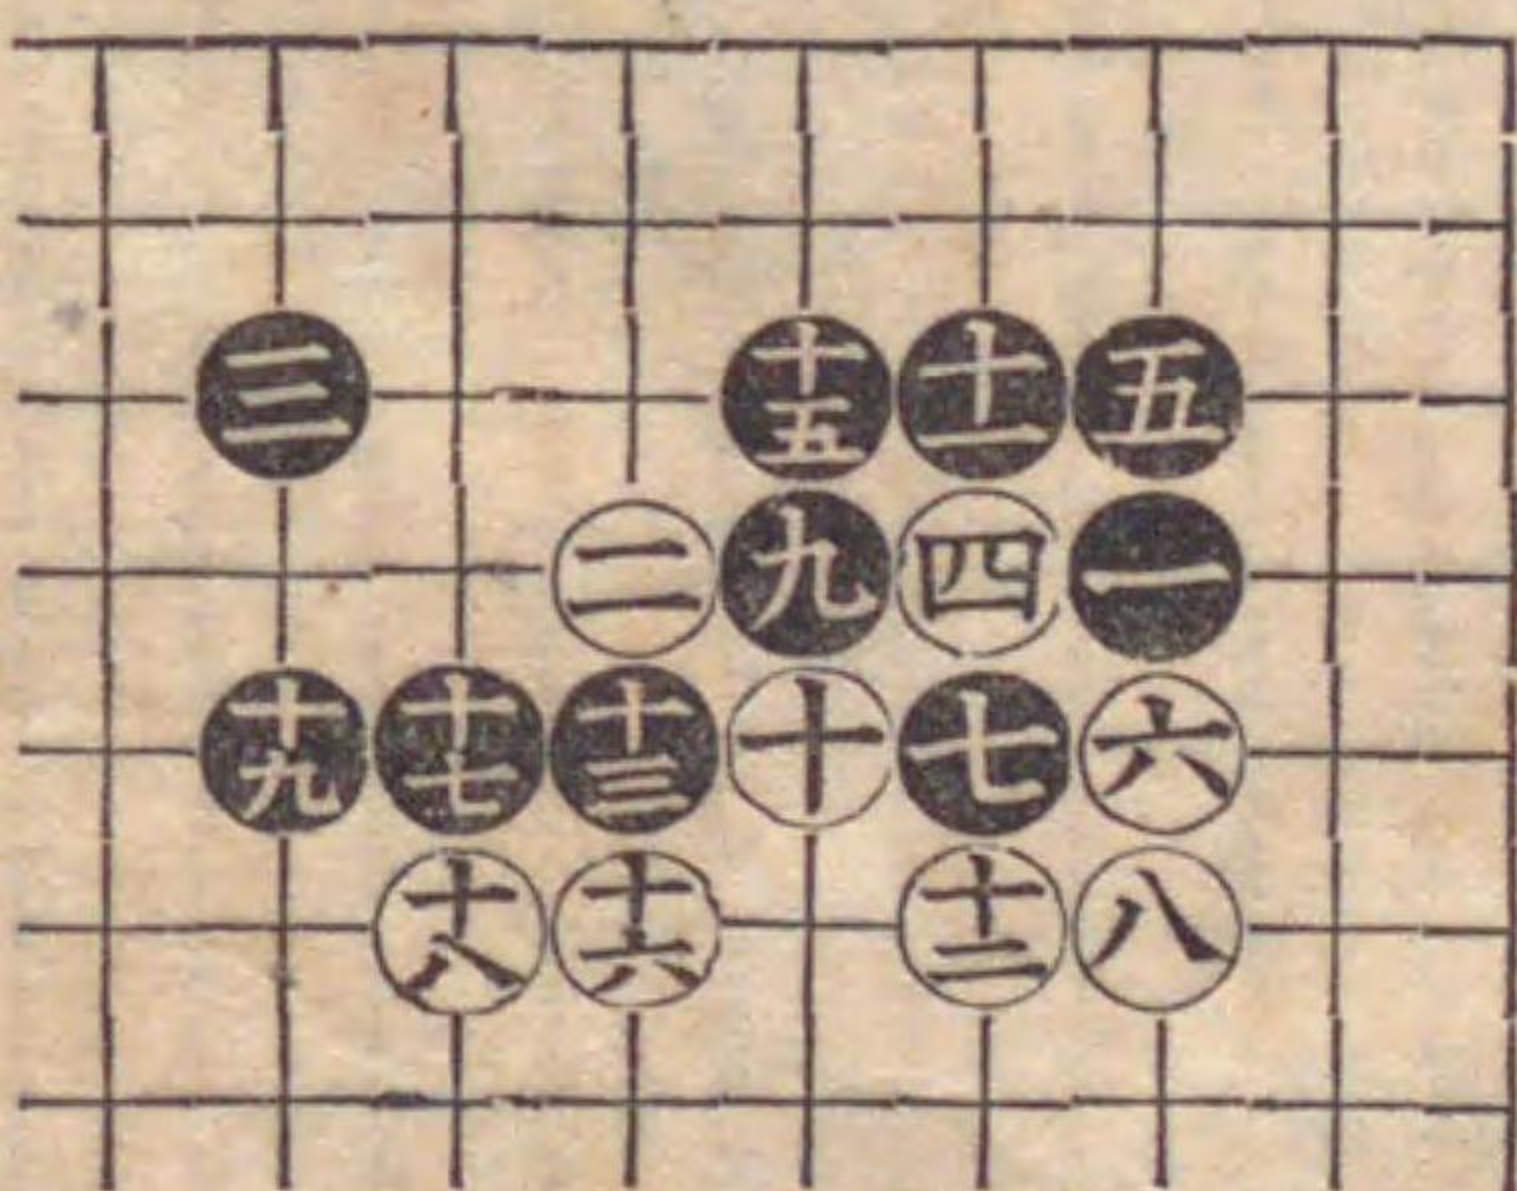 三 十五 十一 五
二 九 四 一
十九 十七 十三 十 七 六
十八 十六 十二 八